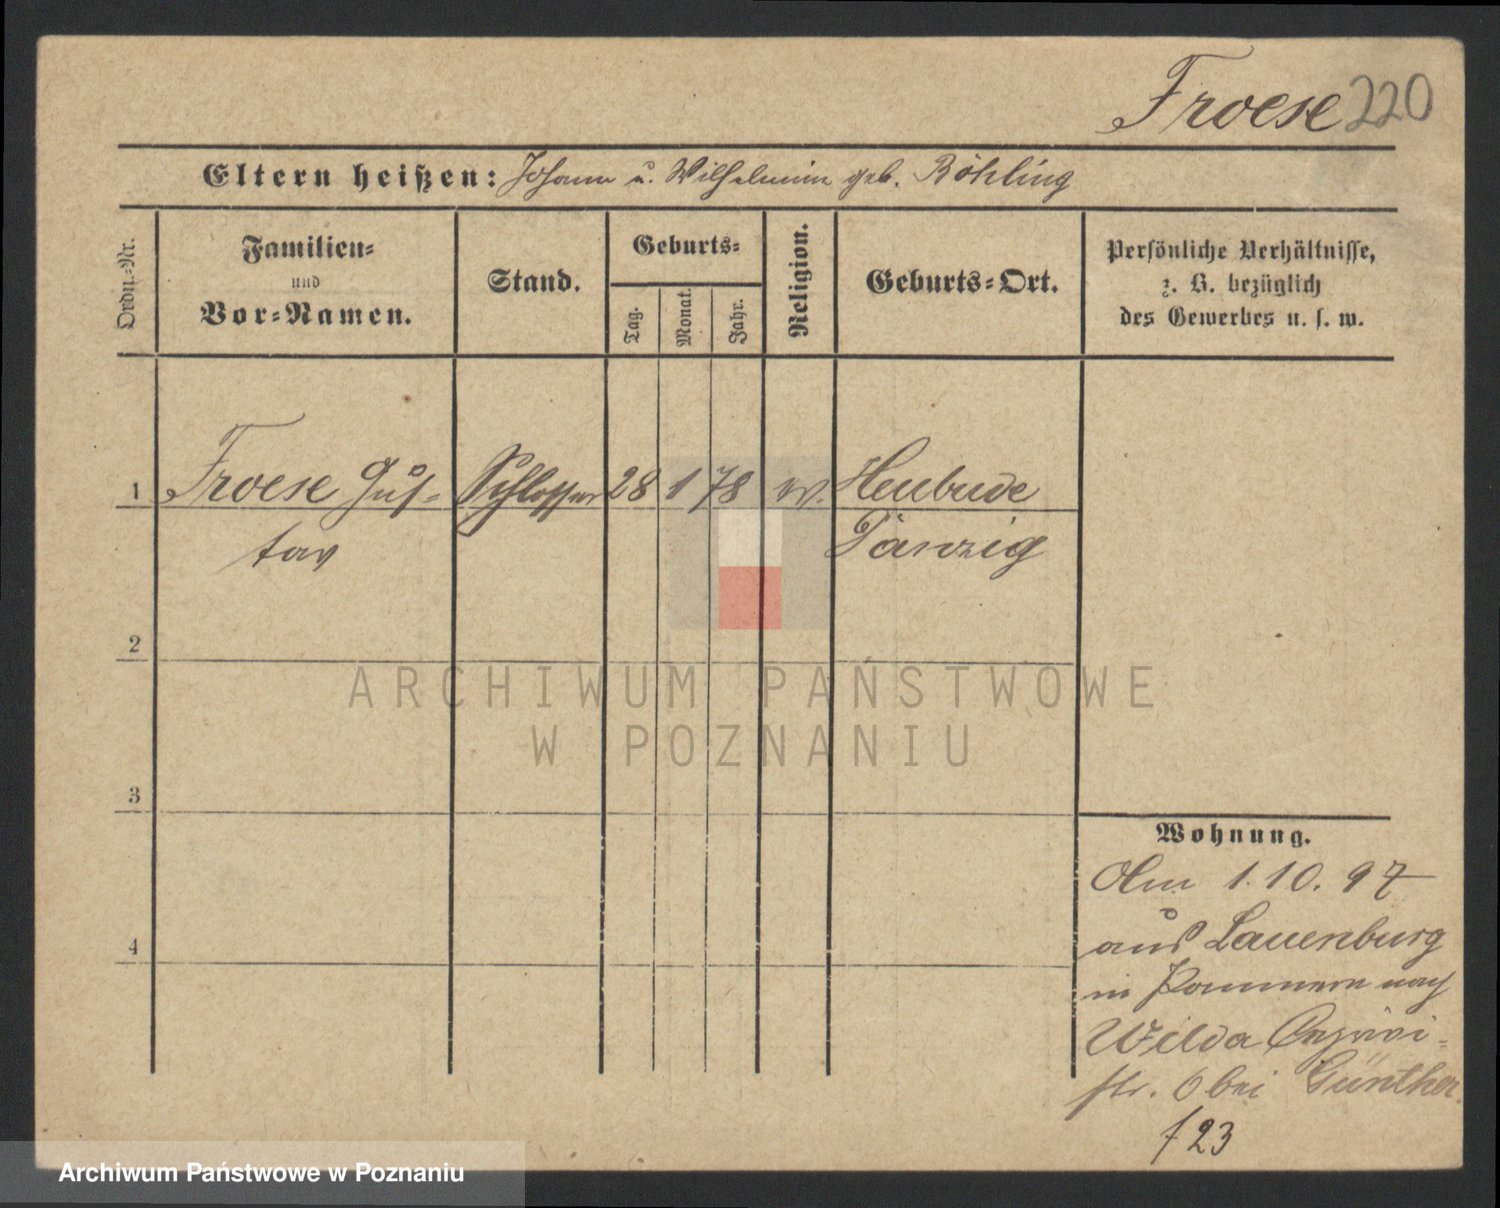 Froese 220
Eltern heißen: Johann u. Wilhelmine geb. Röhling
Ordn.-Nr.
Familien-
und
Vor-Namen.
Stand.
Geburts-
Tag.
Monat.
Jahr.
Religion.
Geburts-Ort.
Persönliche Verhältnisse,
z. B. bezüglich
des Gewerbes u. s. w.
1 Froese Gus- Schlosser 28 1 78 ev. Heubude
tav Danzig
2
3
4
Wohnung.
Am 1.10.97
aus Lauenburg
in Pommern nach
Wilda
str. 6 bei Günther
f 23
ARCHIWUM PAŃSTWOWE
W POZNANIU
Archiwum Państwowe w Poznaniu